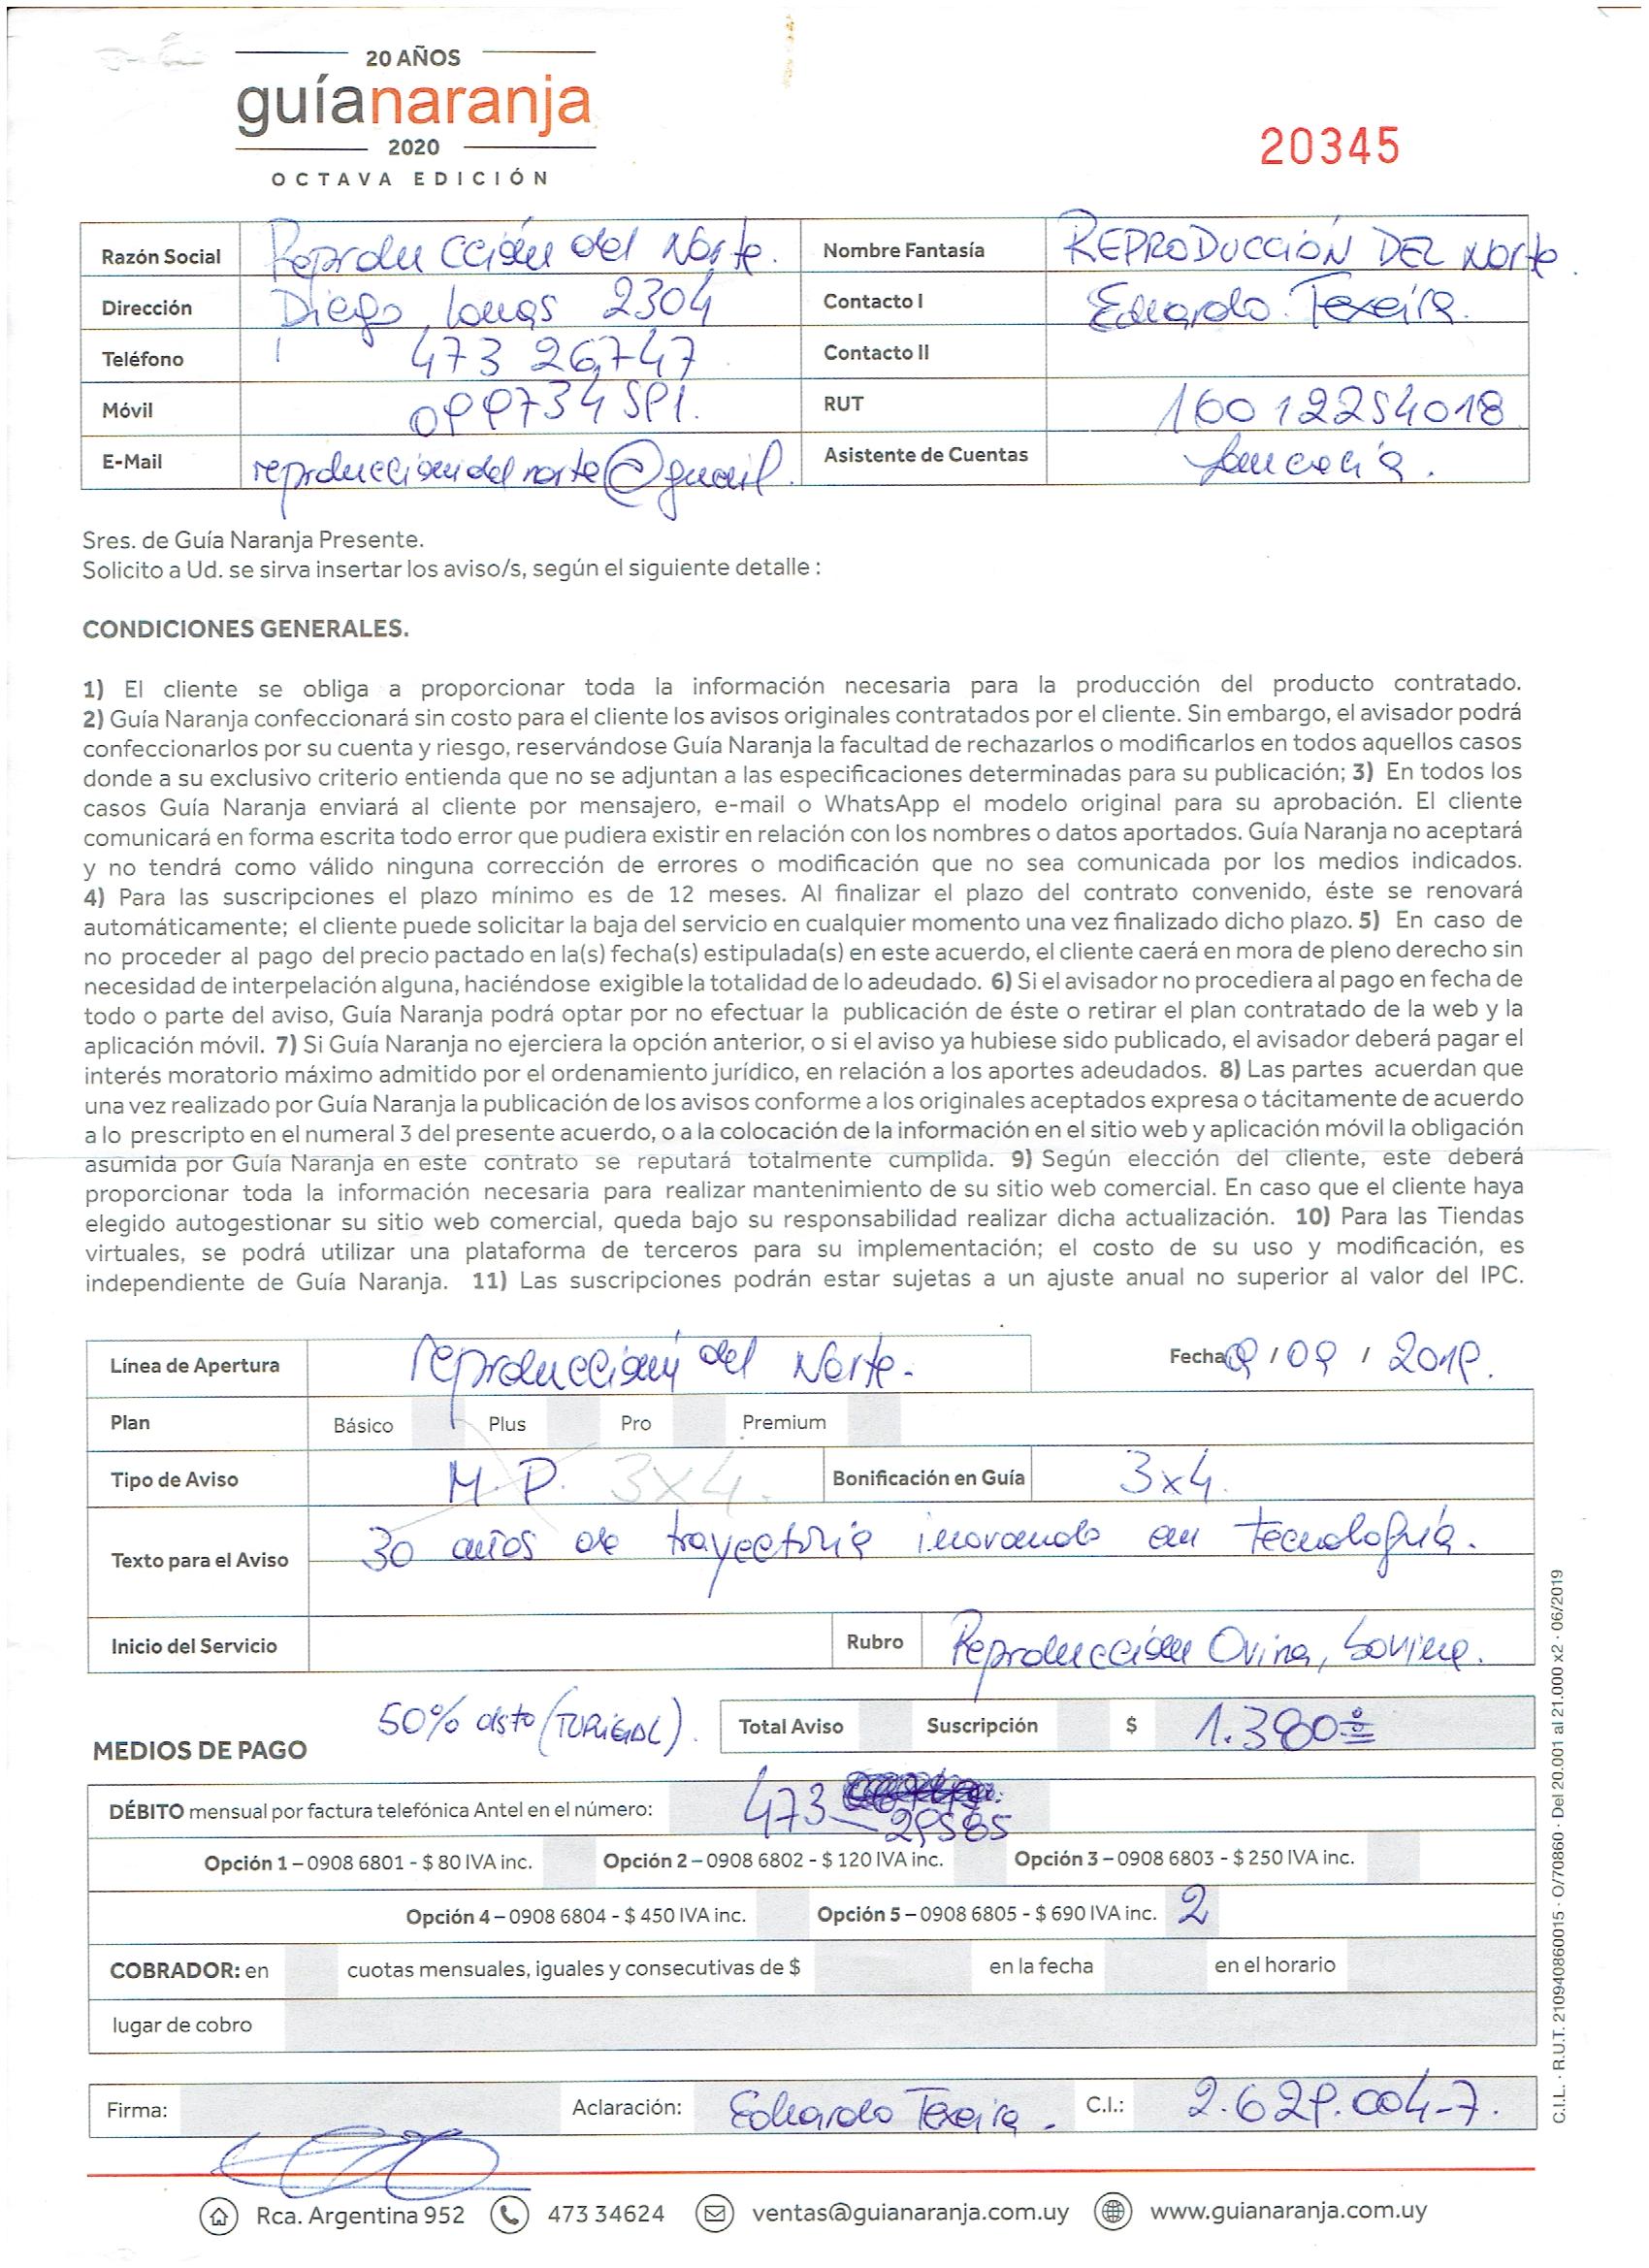 20 AÑOS
guíanaranja
2020
OCTAVA EDICIÓN
20345
Razón Social Reproducción del Norte. Nombre Fantasía REPRODUCCIÓN DEL Norte.
Dirección Diego Lamas 2304 Contacto I Eduardo Texeira.
Teléfono 473 26747 Contacto II
Móvil 099734591. RUT 160122254018
E-Mail reproducciondelnorte@gmail. Asistente de Cuentas
Sres. de Guía Naranja Presente.
Solicito a Ud. se sirva insertar los aviso/s, según el siguiente detalle :
CONDICIONES GENERALES.
1) El cliente se obliga a proporcionar toda la información necesaria para la producción del producto contratado.
2) Guía Naranja confeccionará sin costo para el cliente los avisos originales contratados por el cliente. Sin embargo, el avisador podrá
confeccionarlos por su cuenta y riesgo, reservándose Guía Naranja la facultad de rechazarlos o modificarlos en todos aquellos casos
donde a su exclusivo criterio entienda que no se adjuntan a las especificaciones determinadas para su publicación; 3) En todos los
casos Guía Naranja enviará al cliente por mensajero, e-mail o WhatsApp el modelo original para su aprobación. El cliente
comunicará en forma escrita todo error que pudiera existir en relación con los nombres o datos aportados. Guía Naranja no aceptará
y no tendrá como válido ninguna corrección de errores o modificación que no sea comunicada por los medios indicados.
4) Para las suscripciones el plazo mínimo es de 12 meses. Al finalizar el plazo del contrato convenido, éste se renovará
automáticamente; el cliente puede solicitar la baja del servicio en cualquier momento una vez finalizado dicho plazo. 5) En caso de
no proceder al pago del precio pactado en la(s) fecha(s) estipulada(s) en este acuerdo, el cliente caerá en mora de pleno derecho sin
necesidad de interpelación alguna, haciéndose exigible la totalidad de lo adeudado. 6) Si el avisador no procediera al pago en fecha de
todo o parte del aviso, Guía Naranja podrá optar por no efectuar la publicación de éste o retirar el plan contratado de la web y la
aplicación móvil. 7) Si Guía Naranja no ejerciera la opción anterior, o si el aviso ya hubiese sido publicado, el avisador deberá pagar el
interés moratorio máximo admitido por el ordenamiento jurídico, en relación a los aportes adeudados. 8) Las partes acuerdan que
una vez realizado por Guía Naranja la publicación de los avisos conforme a los originales aceptados expresa o tácitamente de acuerdo
a lo prescripto en el numeral 3 del presente acuerdo, o a la colocación de la información en el sitio web y aplicación móvil la obligación
asumida por Guía Naranja en este contrato se reputará totalmente cumplida. 9) Según elección del cliente, este deberá
proporcionar toda la información necesaria para realizar mantenimiento de su sitio web comercial. En caso que el cliente haya
elegido autogestionar su sitio web comercial, queda bajo su responsabilidad realizar dicha actualización. 10) Para las Tiendas
virtuales, se podrá utilizar una plataforma de terceros para su implementación; el costo de su uso y modificación, es
independiente de Guía Naranja. 11) Las suscripciones podrán estar sujetas a un ajuste anual no superior al valor del IPC.
Línea de Apertura reproducción del Norte. Fecha / 09 / 2019.
Plan Básico Plus Pro Premium
Tipo de Aviso M.P. 3x4. Bonificación en Guía 3x4.
Texto para el Aviso 30 años de trayectoria inovando en tecnología.
Inicio del Servicio Rubro Reproducción Ovina, bovina.
50% dsto
Total Aviso Suscripción $ 1.380
MEDIOS DE PAGO
DÉBITO mensual por factura telefónica Antel en el número: 473 29585
Opción 1 – 0908 6801 - $ 80 IVA inc. Opción 2 – 0908 6802 - $ 120 IVA inc. Opción 3 – 0908 6803 - $ 250 IVA inc.
Opción 4 – 0908 6804 - $ 450 IVA inc. Opción 5 – 0908 6805 - $ 690 IVA inc. 2
COBRADOR: en cuotas mensuales, iguales y consecutivas de $ en la fecha en el horario
lugar de cobro
Firma: Aclaración: Eduardo Texeira. C.I.: 2.629.004-7.
Rca. Argentina 952 473 34624 ventas@guianaranja.com.uy www.guianaranja.com.uy
C.I.L. · R.U.T. 210940860015 · O/70860 · Del 20.001 al 21.000 x2 · 06/2019